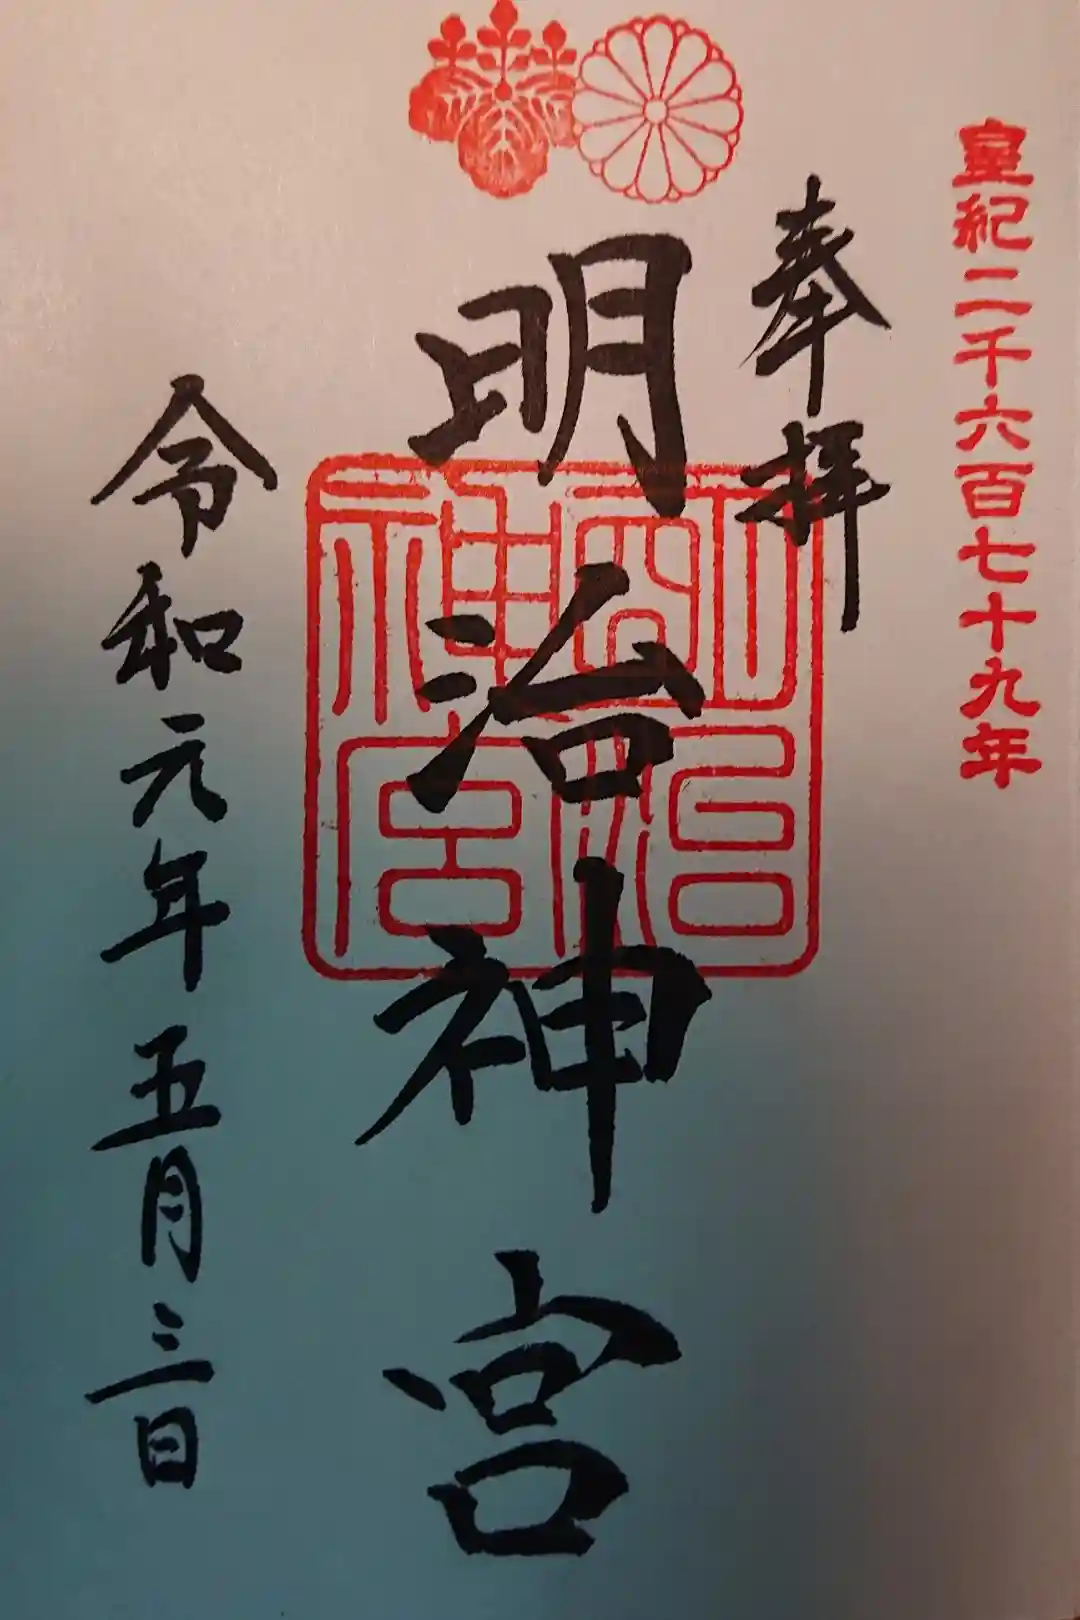 皇紀二千六百七十九年
奉拝
明治神宮
明治神宮
令和元年五月三日